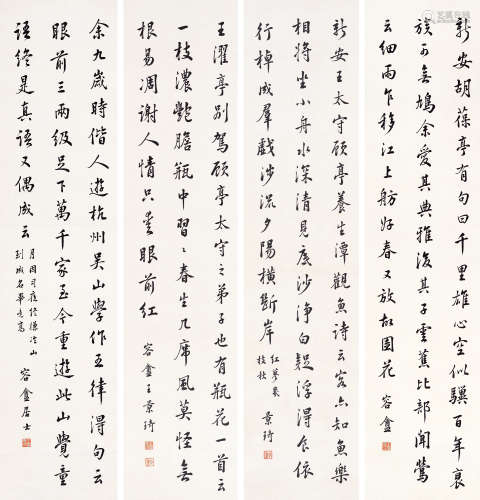 新安胡葆亭有句曰千里雄心空似驥百年衰
族可無鳩余愛其典雅後其子雲蕉比部聞鶯
云細雨乍移江上舫好春又放故園花 容盦
新安王太守顧亭養生潭觀魚詩云客亦知魚樂
相將坐小舟水深清見底沙淨白疑浮得食依
行棹成羣戲涉流夕陽橫斷岸
紅蓼幾
枝秋
景琦
王濯亭別駕顧亭太守之弟子也有瓶花一首云
一枝濃艷膽瓶中習習春生几席風莫怪無
根易凋謝人情只愛眼前紅
容盦王景琦
余九歲時偕人遊杭州吳山學作五律得句云
眼前三兩級足下萬千家至今重遊此山覺童
語終是真語又偶成云
月因司夜終嫌冷山
到成名畢竟高
容盦居士